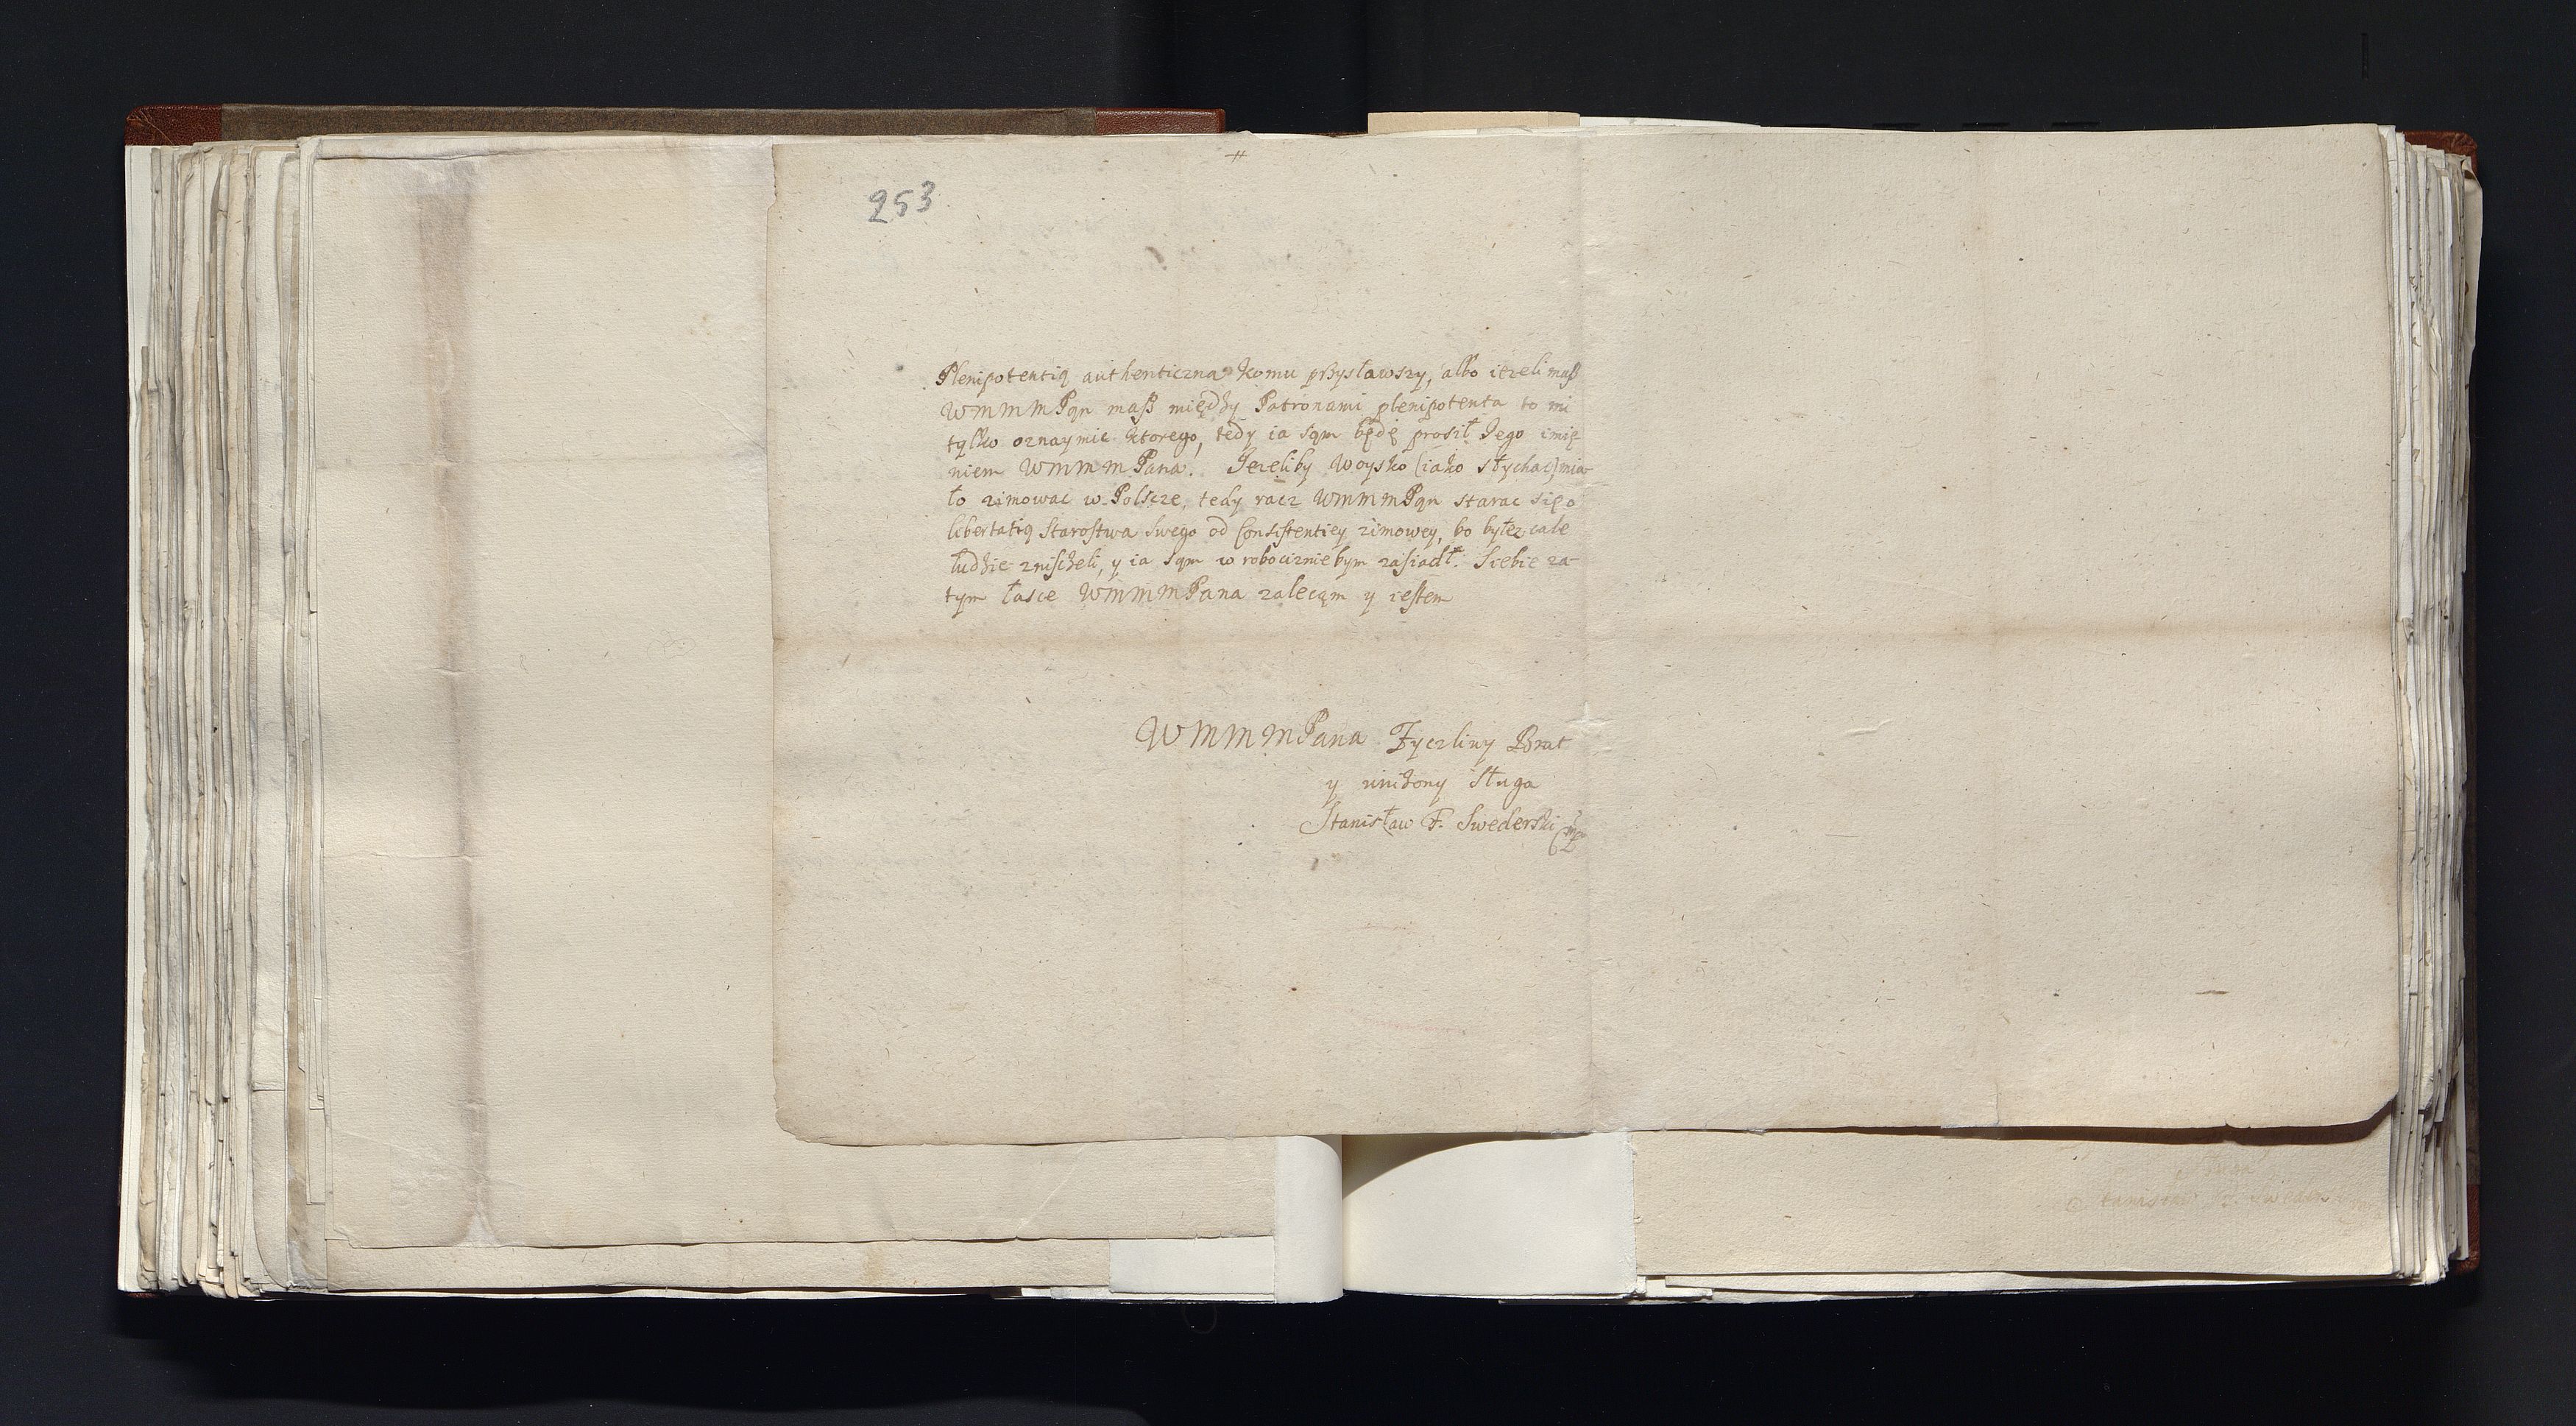 253
Plenipotentią authenticzną komu przysławszy, albo ieżeli maß
WMMMPan maß między Patronami plenipotenta to mi
tylko oznaymic ktorego, tedy ia sam będę prosił Jego imię
niem WMMMPana. Jeżeliby woysko (iako słychac) mia-
ło zimowac w Polscze, tedy racz WMMMPan starac się o
libertatią Starostwa swego od Consistentiey zimowey, bo bytez cale
ludzie zniszczeli, y ia sam w robociznie bym zasiadł. Siebie za-
tym łasce WMMMPana zalecam y iestem
WMMMPana Życzliwy Brat
y uniżony Sługa
Stanisław F. Swederski mp